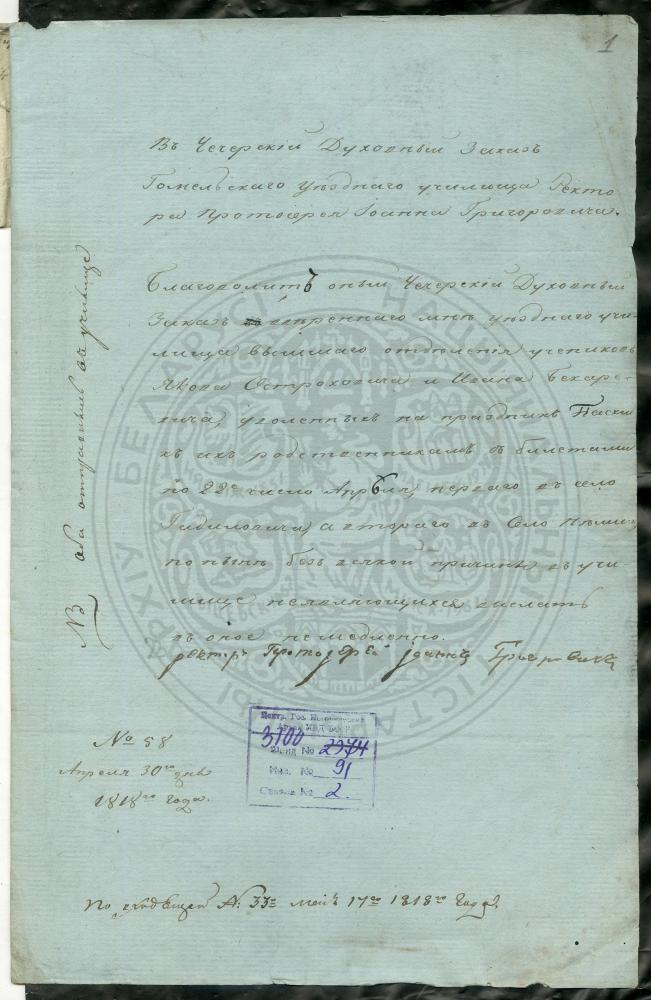 1
Въ Чечерскій Духовный Заказъ
Гомельскаго уѣзднаго училища Ректо
ра Протоіерея Іоанна Григоровича.
Благоволитъ оный Чечерскій Духовный
Заказъ ввѣреннаго мнѣ уѣзднаго учи-
лища высшаго отдѣленія учениковъ
Якова Остроховича и Ивана Бекаре-
вича, уволенныхъ на праздникъ Пасхи
къ ихъ родственникамъ съ билетами
по 22е число Апрѣля, перваго въ село
а втораго въ Село
по нынѣ безъ всякой причины въ учи-
лище неявляющихся, выслать
въ оное немедленно.
ректоръ Протоіерей Іоаннъ Григоровичъ
NB оба отправлены въ училище
№ 58
Апреля 30го дня
1818го года.
Центр. Гос. Исторический
Архив
3100
Фонд № 2974
Инв. № 91
Связка № 2.
По входящей №: 33= маія 17го 1818го Года.
НАЦЫЯНАЛЬНЫ ГІСТАРЫЧНЫ АРХІЎ БЕЛАРУСІ